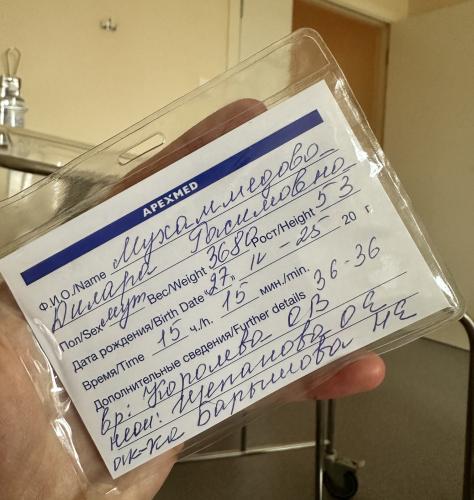 APEXMED
Ф.И.О./Name Мухаммедова
Дилара Расимовна
Пол/Sex Вес/Weight 3680 Рост/Height 53
Дата рождения/Birth Date "27" 11 - 25 20 г.
Время/Time 15 ч./h. 15 мин./min.
Дополнительные сведения/Further details 36-36
вр: Королева ОВ
неон: Щепанова ОЕ
ак-ка Барышова НЕ